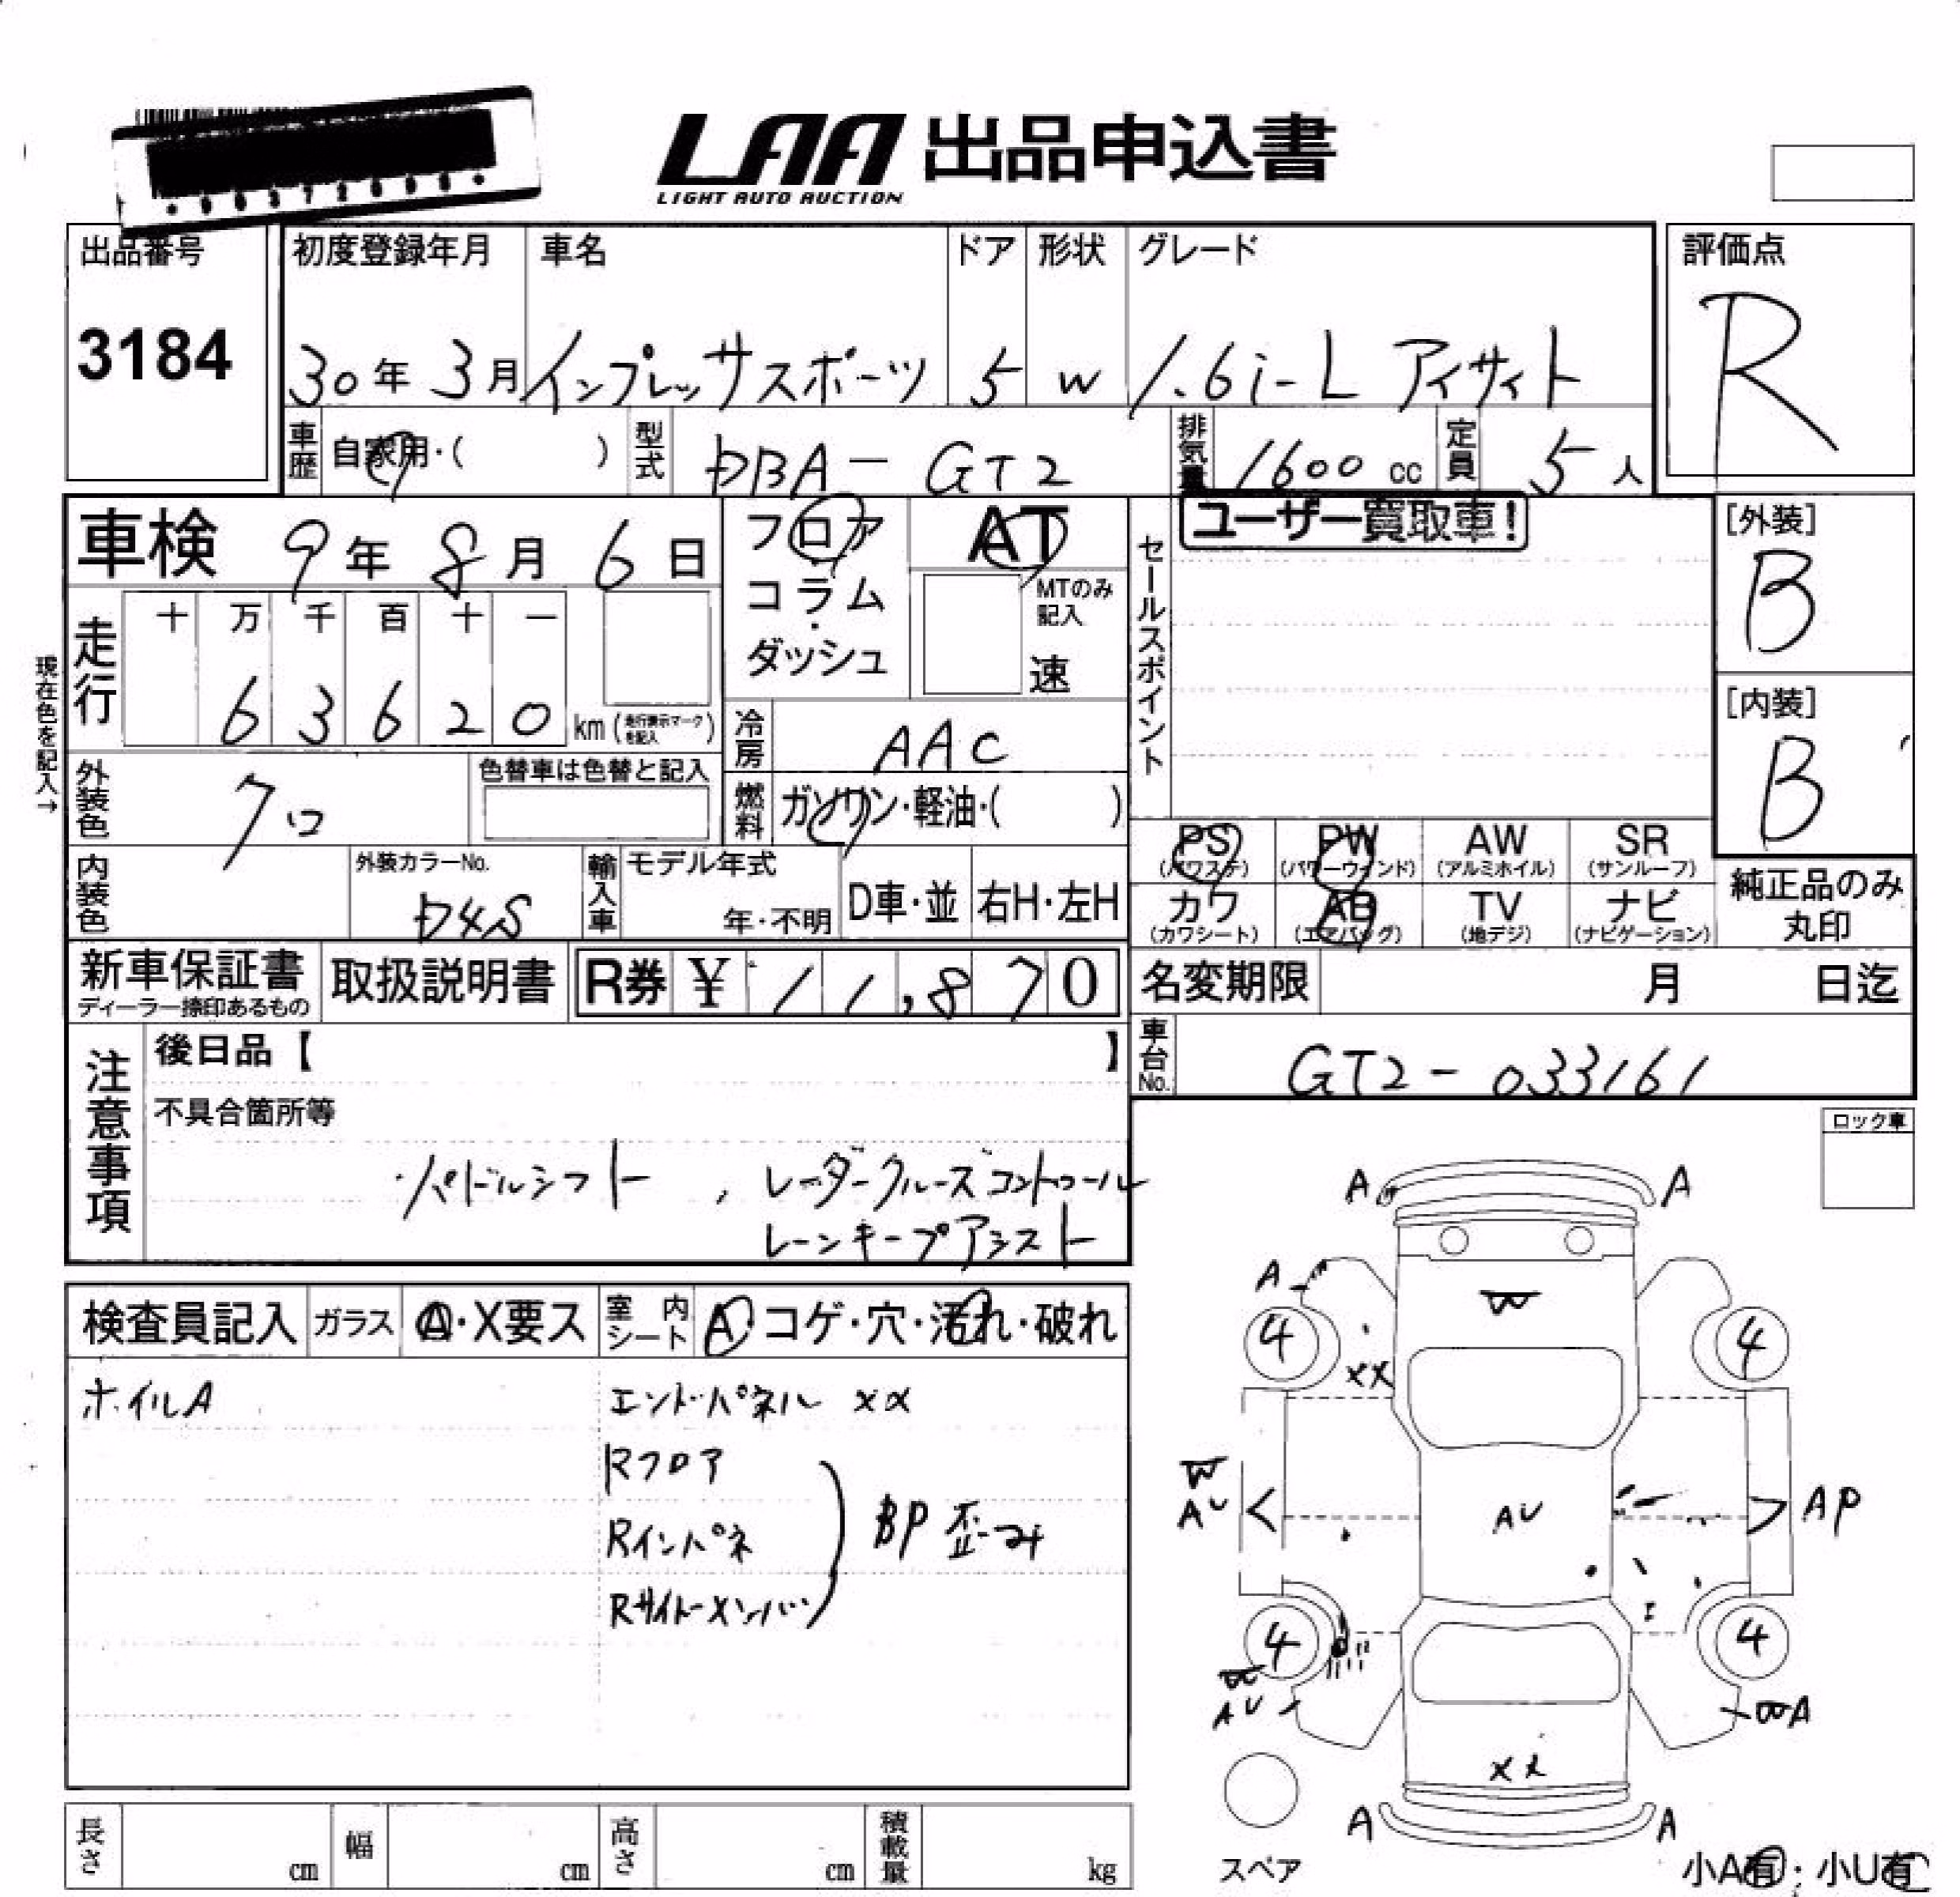 LAA 出品申込書
LIGHT AUTO AUCTION
出品番号
3184
初度登録年月
30年 3月
車名
インプレッサスポーツ
ドア
5
形状
W
グレード
1.6i-L アイサイト
評価点
R
車歴
自家用・( )
型式
DBA-GT2
排気量
1600 cc
定員
5 人
車検 9年 8月 6日
フロア
コラム
・
ダッシュ
AT
MTのみ
記入
速
セールスポイント
ユーザー買取車!
[外装]
B
[内装]
B
走行
十 万 千 百 十 一
6 3 6 2 0 km (走行表示マークを記入)
現在色を記入→
冷房
AAC
外装色
クロ
色替車は色替と記入
燃料
ガソリン・軽油・( )
PS
(パワステ)
PW
(パワーウィンド)
AW
(アルミホイル)
SR
(サンルーフ)
カワ
(カワシート)
AB
(エアバッグ)
TV
(地デジ)
ナビ
(ナビゲーション)
純正品のみ
丸印
内装色
外装カラーNo.
D4S
輸入車
モデル年式
年・不明
D車・並
右H・左H
新車保証書
ディーラー捺印あるもの
取扱説明書
R券 ¥ 11,870
名変期限 月 日迄
車台No.
GT2-033161
注意事項
後日品【 】
不具合箇所等
パドルシフト , レーダークルーズコントロール
レーンキープアシスト
ロック車
検査員記入
ガラス
A・X要ス
室内シート
A コゲ・穴・汚れ・破れ
ホイルA
エンドパネル XX
Rフロア
Rインパネ
Rサイドメンバー
BP 歪み
A A
A
W
4 4
XX
W
AU
AU
AP
4 4
W
AU
WA
XX
A A
スペア
小A有・小U有
長さ cm
幅 cm
高さ cm
積載量 kg